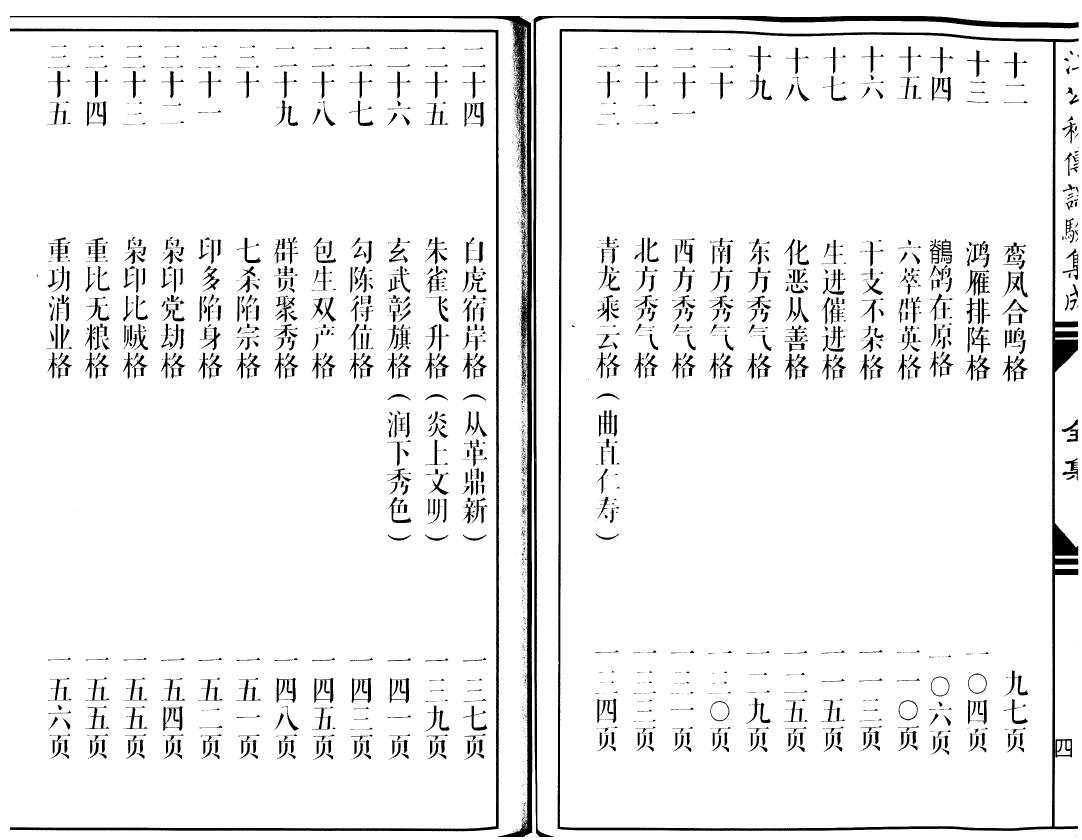 全集
四
十二 鸾凤合鸣格 九七页
十三 鸿雁排阵格 一〇四页
十四 鶺鸰在原格 一〇六页
十五 六萃群英格 一一〇页
十六 干支不杂格 一一三页
十七 生进催进格 一一五页
十八 化恶从善格 一二五页
十九 东方秀气格 一二九页
二十 南方秀气格 一三〇页
二十一 西方秀气格 一三一页
二十二 北方秀气格 一三三页
二十三 青龙乘云格(曲直仁寿) 一三四页
二十四 白虎宿岸格(从革鼎新) 一三七页
二十五 朱雀飞升格(炎上文明) 一三九页
二十六 玄武彰旗格(润下秀色) 一四一页
二十七 勾陈得位格 一四三页
二十八 包生双产格 一四五页
二十九 群贵聚秀格 一四八页
三十 七杀陷宗格 一五一页
三十一 印多陷身格 一五二页
三十二 枭印党劫格 一五四页
三十三 枭印比贼格 一五五页
三十四 重比无粮格 一五五页
三十五 重功消业格 一五六页